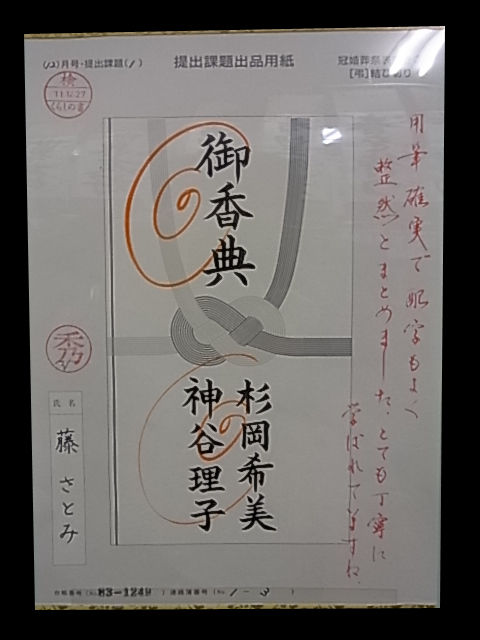 (12)月号・提出課題(1)
提出課題出品用紙
冠婚葬祭
[弔]結び切り
検
11.12.27
くらしの書
御香典
杉岡希美
神谷理子
用筆確実で 照字もよく
整然とまとめました、とても丁寧に
学ばれていますね。
秀
氏名
藤 さとみ
(No. 83-1249 ) 連絡簿番号 (No. 1-3 )